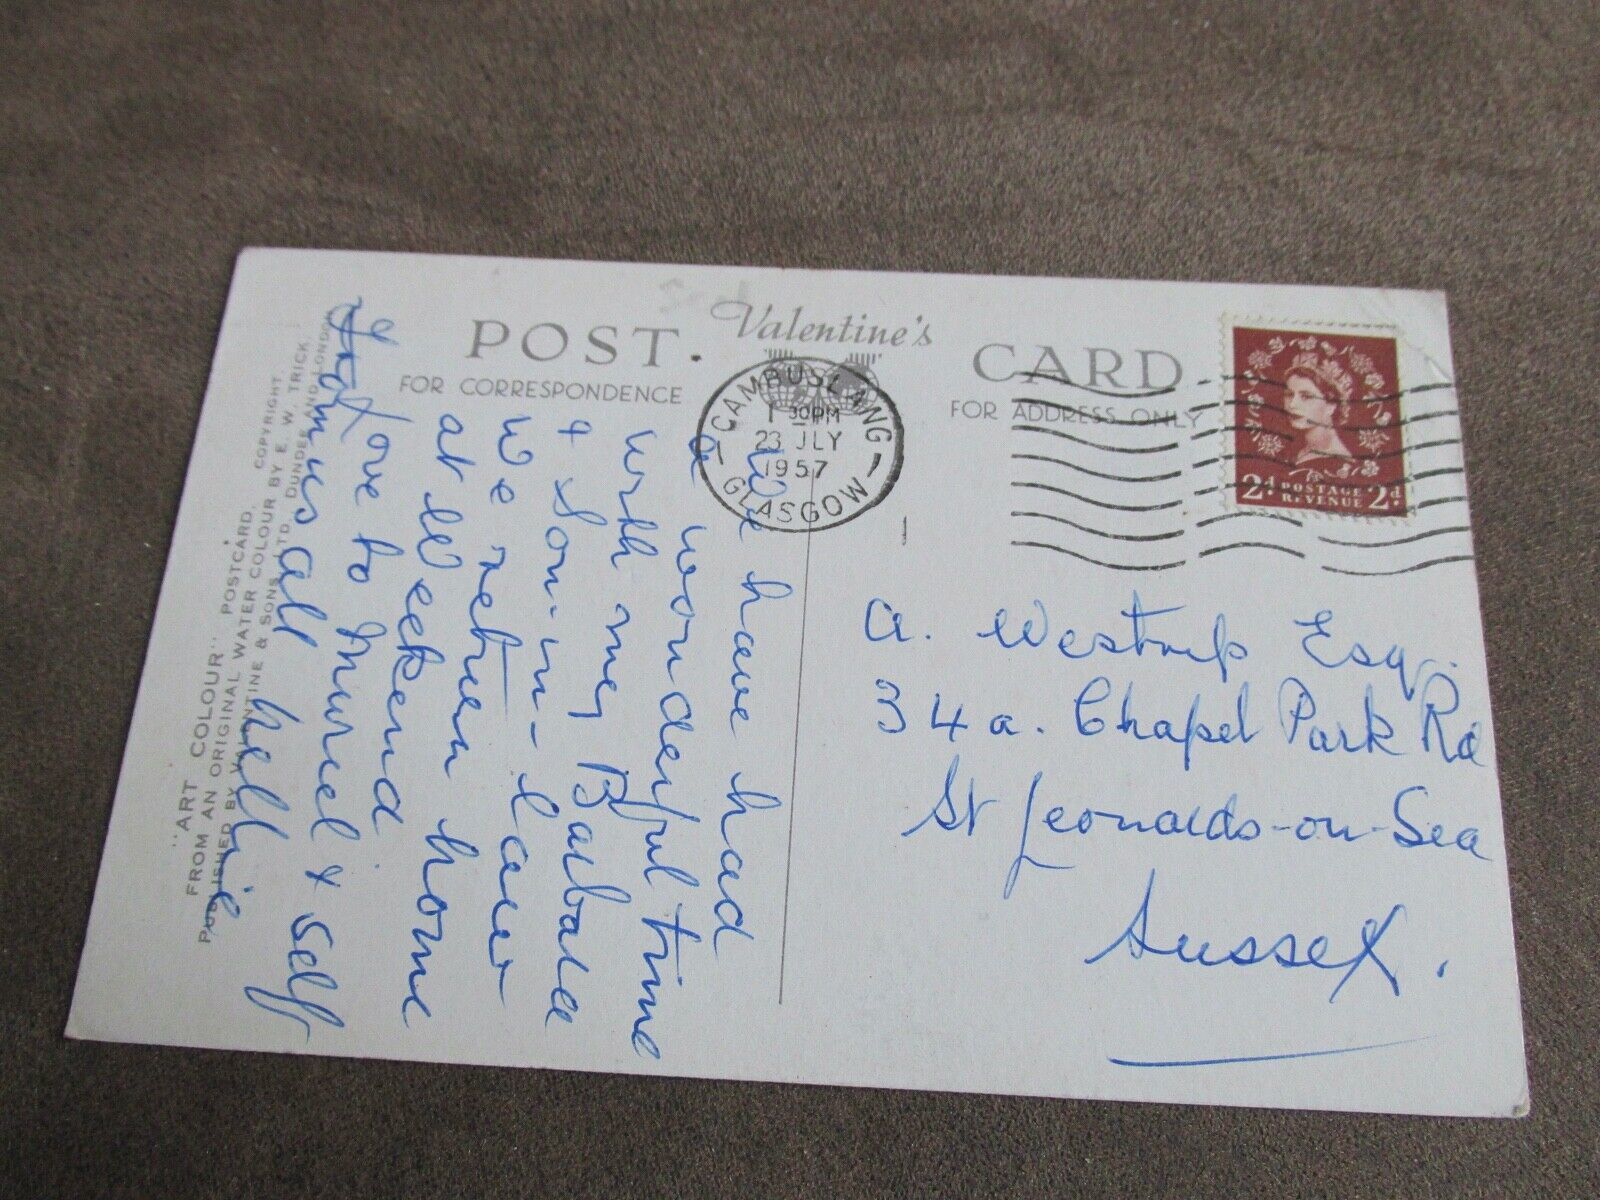 POST
Valentine's
CARD
FOR CORRESPONDENCE
FOR ADDRESS ONLY
CAMBUSLANG
1 30PM
23 JLY
1957
GLASGOW
2d POSTAGE REVENUE 2d
We have had
a wonderful time
with my Barbara
& Son-in-law
We return home
at Weekend
Love to Muriel & self
from us all Nellie
A. Westrup Esq.
34a. Chapel Park Rd
St Leonards-on-Sea
Sussex.
"ART COLOUR" POSTCARD. COPYRIGHT.
FROM AN ORIGINAL WATER COLOUR BY E. W. TRICK.
PUBLISHED BY VALENTINE & SONS, LTD. DUNDEE AND LONDON